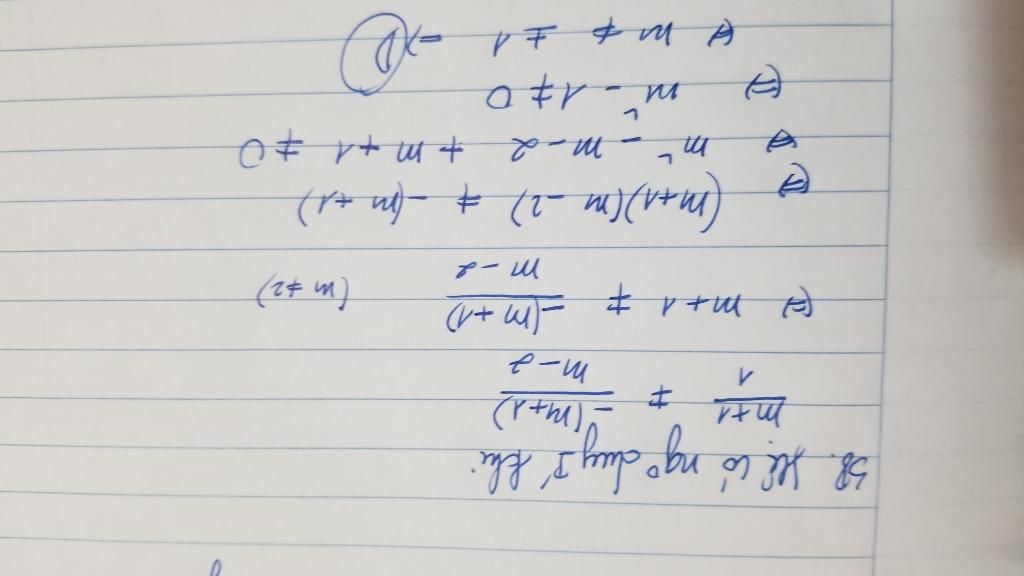 58. Hệ có ngº duy I' khi:
m+1 / 1 ≠ -(m+1) / m-2
(=) m+1 ≠ -(m+1) / m-2 (m≠2)
(=) (m+1)(m-2) ≠ -(m+1)
(=) m² - m - 2 + m + 1 ≠ 0
(=) m² - 1 ≠ 0
(=) m ≠ ±1 -> D